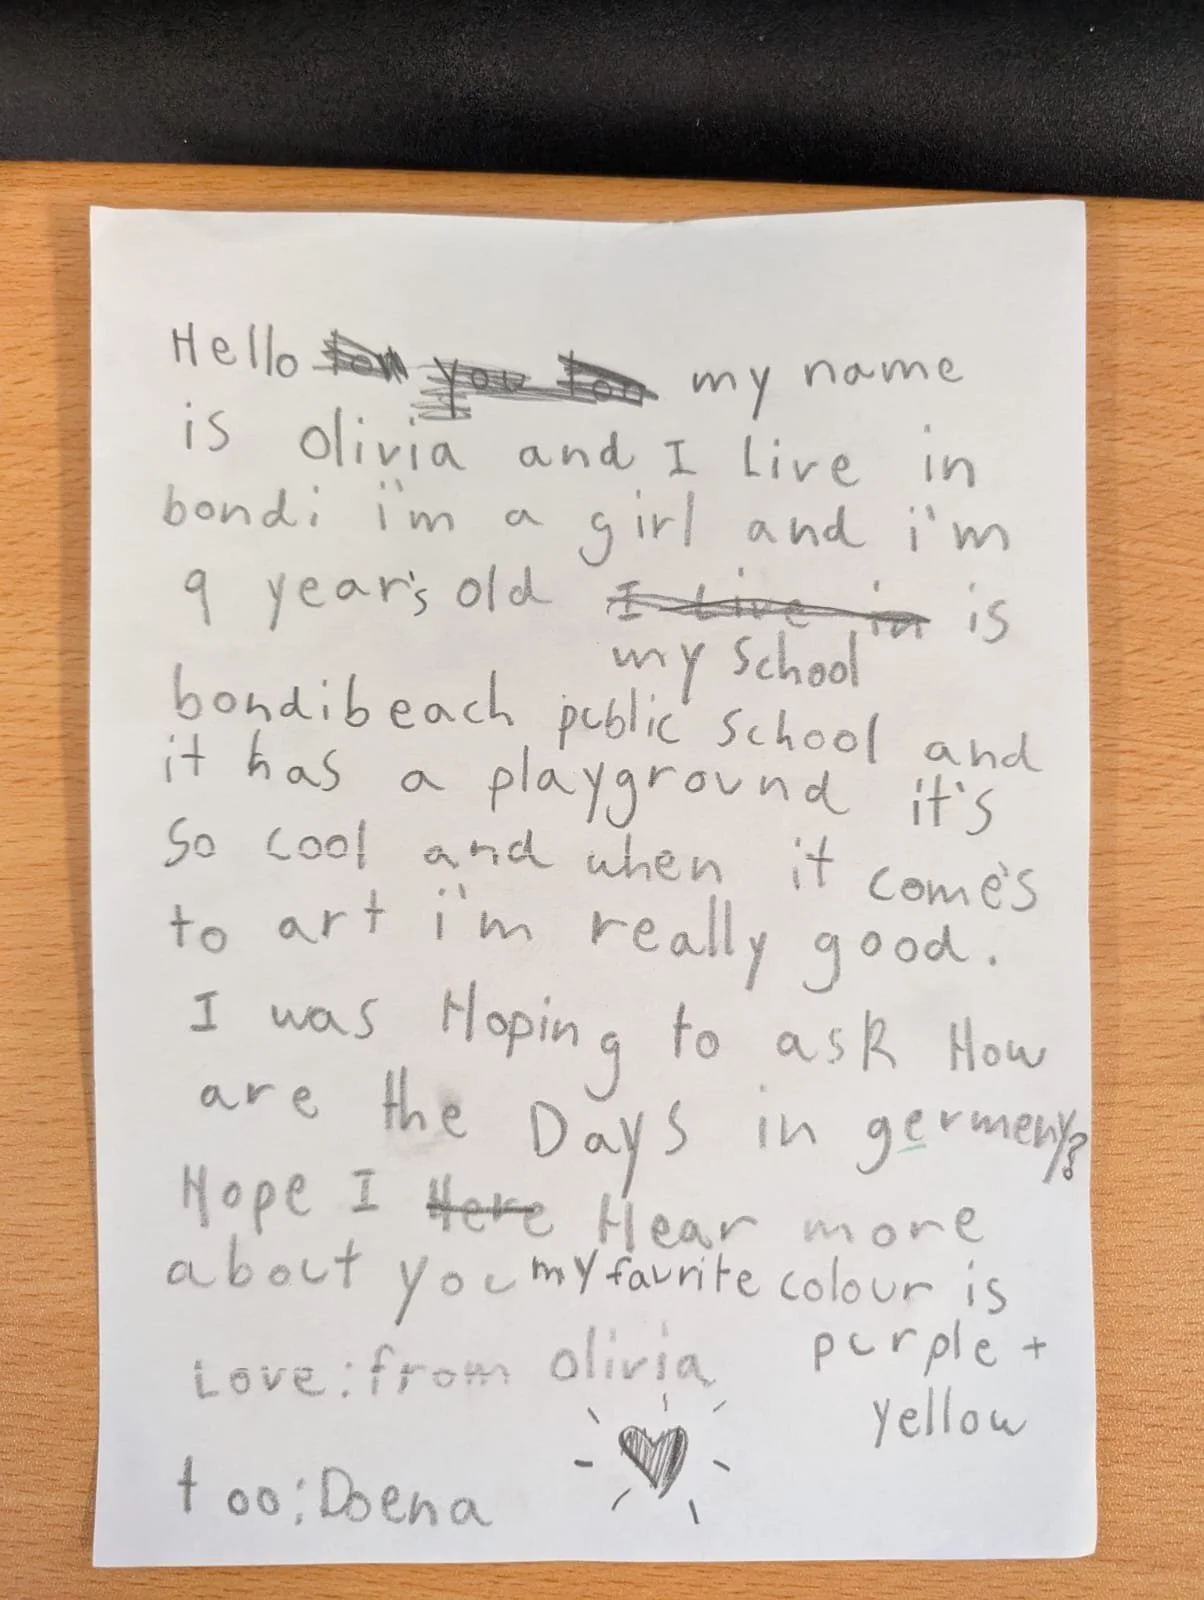 Hello you my name
is olivia and I Live in
bondi i'm a girl and i'm
9 year's old I Live in is
my school
bondibeach public school and
it has a playground it's
so cool and when it come's
to art i'm really good.
I was Hoping to ask How
are the Days in germeny?
Hope I Here Hear more
about you my favrite colour is
purple +
yellow
Love: from olivia
too: Doena